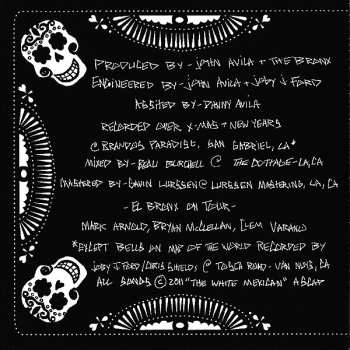 PRODUCED BY - JOHN AVILA + THE BRONX
ENGINEERED BY - JOHN AVILA + JOBY J FORD
ASSITED BY - DANNY AVILA
RECORDED OVER X-MAS + NEW YEARS
@ BRANDOS PARADISE, SAN GABRIEL, CA*
MIXED BY - BEAU BURCHELL @ THE COTTAGE - LA, CA
MASTERED BY - GAVIN LURSSEN @ LURSSEN MASTERING, LA, CA
- EL BRONX ON TOUR -
MARK ARNOLD, BRYAN MCCLELLAN, CLEM VARANO
*EXCEPT BELLS ON MAP OF THE WORLD RECORDED BY
JOBY J FORD / CHRIS SHIELDS @ TOSCA ROAD - VAN NUYS, CA
ALL SONGS © 2011 "THE WHITE MEXICAN" ASCAP